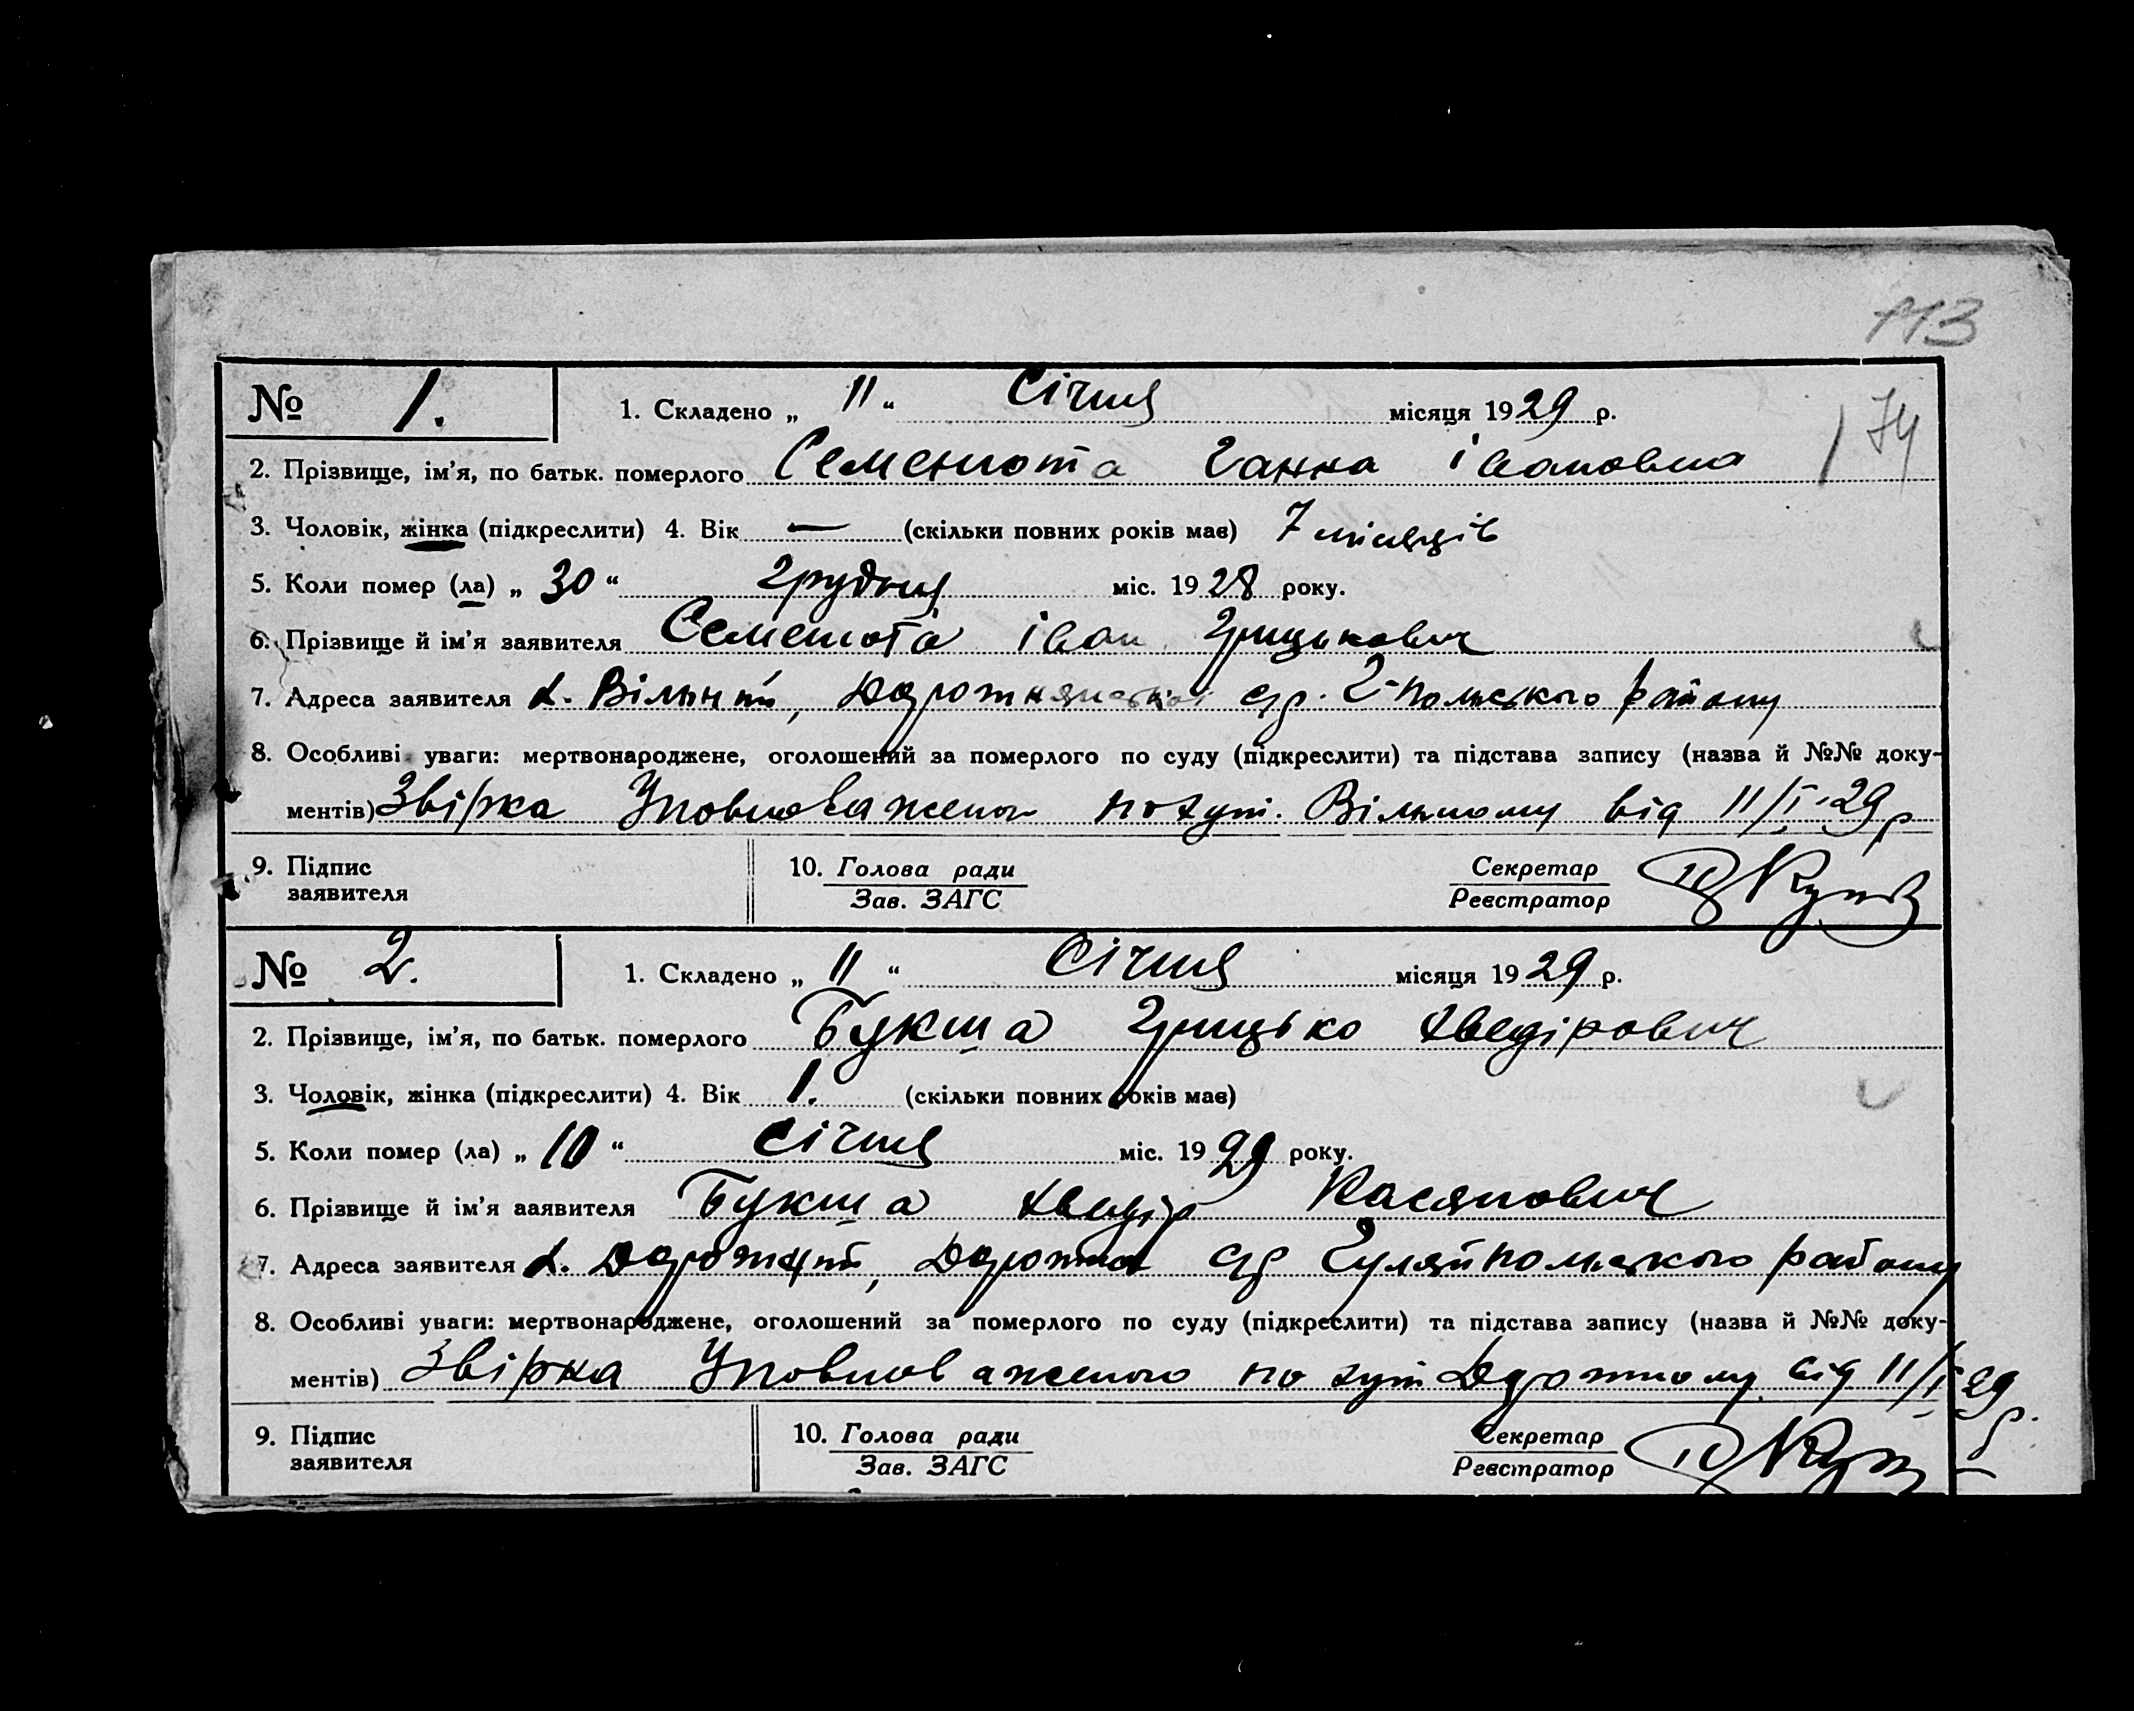 113
№ 1. 1. Складено „ 11 “ Січня місяця 1929 р.
174
2. Прізвище, ім'я, по батьк. померлого Семенюта Ганна Івановна
3. Чоловік, жінка (підкреслити) 4. Вік — (скільки повних років має) 7 місяців
5. Коли помер (ла) „ 30 “ грудня міс. 1928 року.
6. Прізвище й ім'я заявителя Семенюта Іван Грицькович
7. Адреса заявителя х. Вільний, Дорожнянської с/р. Г-польського району
8. Особливі уваги: мертвонароджене, оголошений за померлого по суду (підкреслити) та підстава запису (назва й №№ доку-
ментів) Звірка Уповноваженого по хут. Вільному від 11/I-29 р
9. Підпис заявителя 10. Голова ради Секретар
Зав. ЗАГС Реєстратор
№ 2. 1. Складено „ 11 “ Січня місяця 1929 р.
2. Прізвище, ім'я, по батьк. померлого Букша Грицько Хведірович
3. Чоловік, жінка (підкреслити) 4. Вік 1. (скільки повних років має)
5. Коли помер (ла) „ 10 “ Січня міс. 1929 року.
6. Прізвище й ім'я заявителя Букша Хведір Касянович
7. Адреса заявителя х. Дорожний, с/р Гуляйпольського району
8. Особливі уваги: мертвонароджене, оголошений за померлого по суду (підкреслити) та підстава запису (назва й №№ доку-
ментів) Звірка Уповноваженого по хут Дорожному від 11/I 29 р.
9. Підпис заявителя 10. Голова ради Секретар
Зав. ЗАГС Реєстратор